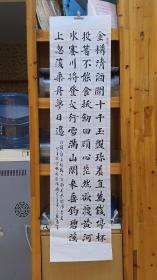 金樽清酒鬥十千玉盤珍羞直萬錢停杯
投箸不能食拔劍四顧心茫然欲渡黄河
冰塞川將登太行雪滿山閒來垂釣碧溪
上忽復乘舟夢日邊